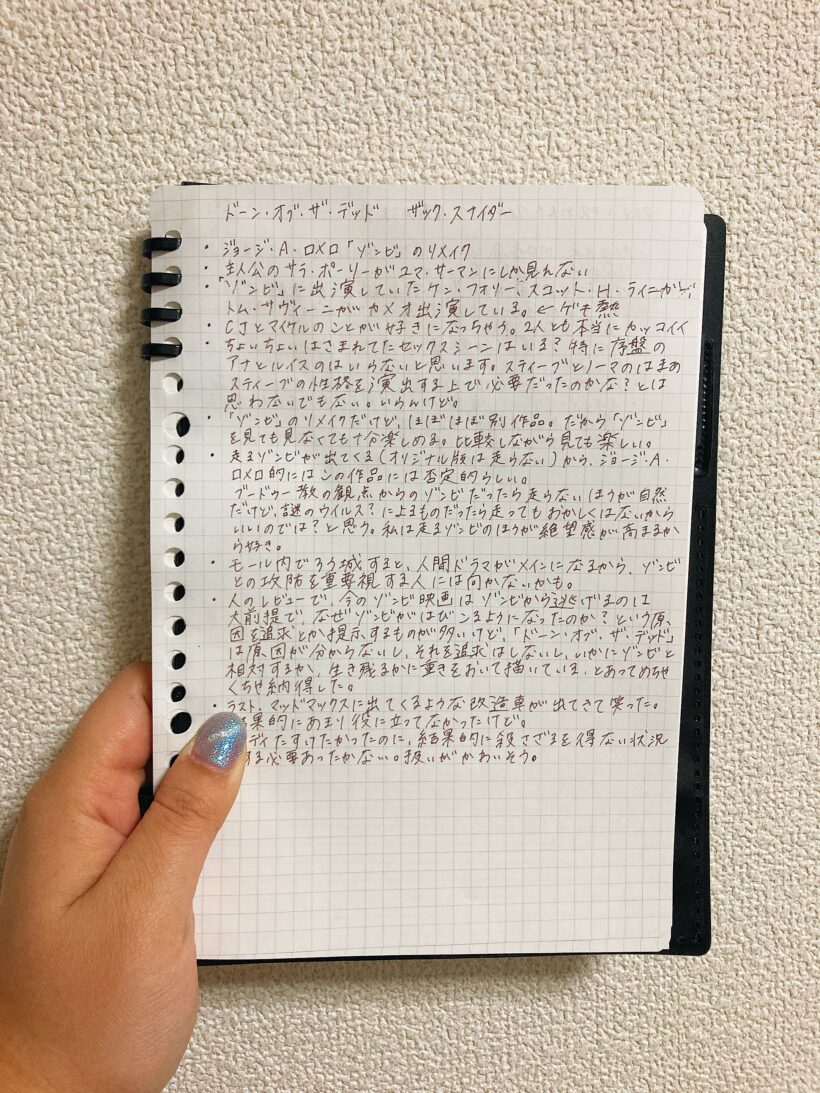 ドーン・オブ・ザ・デッド　ザック・スナイダー
・ジョージ・A・ロメロ「ゾンビ」のリメイク
・主人公のサラ・ポーリーがユマ・サーマンにしか見えない
・「ゾンビ」に出演していたケン・フォリー、スコット・H・ライニガー、
トム・サヴィーニがカメオ出演している。←ゲキ熱
・CJとマイケルのことが好きになっちゃう。2人とも本当にカッコイイ
・ちょいちょいはさまれてたセックスシーンはいる?特に序盤の
アナとルイスのはいらないと思います。スティーブとノーマのはまあ
スティーブの性格を演出する上で必要だったのかな?とは
思わないでもない。いらんけど。
・「ゾンビ」のリメイクだけど、ほぼほぼ別作品。だから「ゾンビ」
を見ても見なくても十分楽しめる。比較しながら見ても楽しい。
・走るゾンビが出てくる(オリジナル版は走らない)から、ジョージ・A・
ロメロ的にはこの作品には否定的らしい。
ブードゥー教の観点からのゾンビだったら走らないほうが自然
だけど、謎のウイルス?によるものだったら走ってもおかしくはないから
いいのでは?と思う。私は走るゾンビのほうが絶望感が高まるか
ら好き。
・モール内でろう城すると、人間ドラマがメインになるから、ゾンビ
との攻防を重要視する人には向かないかも。
・人のレビューで、今のゾンビ映画はゾンビから逃げるのは
大前提で、なぜゾンビがはびこるようになったのか?という原
因を追求とか提示するものが多いけど、「ドーン・オブ・ザ・デッド」
は原因が分からないし、それを追求はしないし、いかにゾンビと
相対するか、生き残るかに重きをおいて描いている、とあってめちゃ
くちゃ納得した。
・ラスト、マッドマックスに出てくるような改造車が出てきて笑った。
果的にあまり役に立ってなかったけど。
ディたすけたかったのに、結果的に殺さざるを得ない状況
する必要あったかない。扱いがかわいそう。